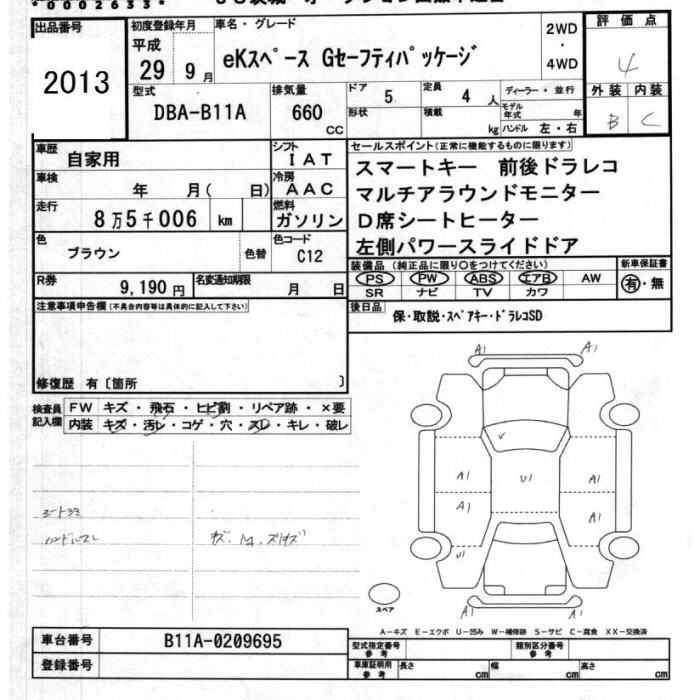 *0002633*
出品番号
2013
初度登録年月
平成
29 9月
車名・グレード
eKスペース Gセーフティパッケージ
2WD
・
4WD
評価点
4
外装 内装
B C
型式
DBA-B11A
排気量
660
CC
ドア
5
定員
4 人
形状
積載
kg
ディーラー・並行
モデル年式 年
ハンドル 左・右
車歴
自家用
シフト
IAT
車検
年 月( 日)
冷房
AAC
走行
8万5千006 km
燃料
ガソリン
色
ブラウン
色替
色コード
C12
R券
9,190円
名変通知期限
月 日
セールスポイント(正常に機能するものに限ります)
スマートキー 前後ドラレコ
マルチアラウンドモニター
D席シートヒーター
左側パワースライドドア
装備品(純正品に限り○をつけてください)
PS PW ABS エアB AW
SR ナビ TV カワ
新車保証書
有・無
後日品
保・取説・スペアキー・ドラレコSD
注意事項申告欄(不具合内容等は具体的に記入して下さい)
修復歴 有〔箇所 〕
検査員記入欄
FW キズ・飛石・ヒビ割・リペア跡・×要
内装 キズ・汚レ・コゲ・穴・スレ・キレ・破レ
A1 A1
V
A1 U1 A1
A1 A1
U1
A1 A1
スペア
A-キズ E-エクボ U-凹み W-補修跡 S-サビ C-腐食 XX-交換済
車台番号
B11A-0209695
登録番号
型式指定番号
参考
類別区分番号
参考
車庫証明用
参考
長さ cm
幅 cm
高さ cm